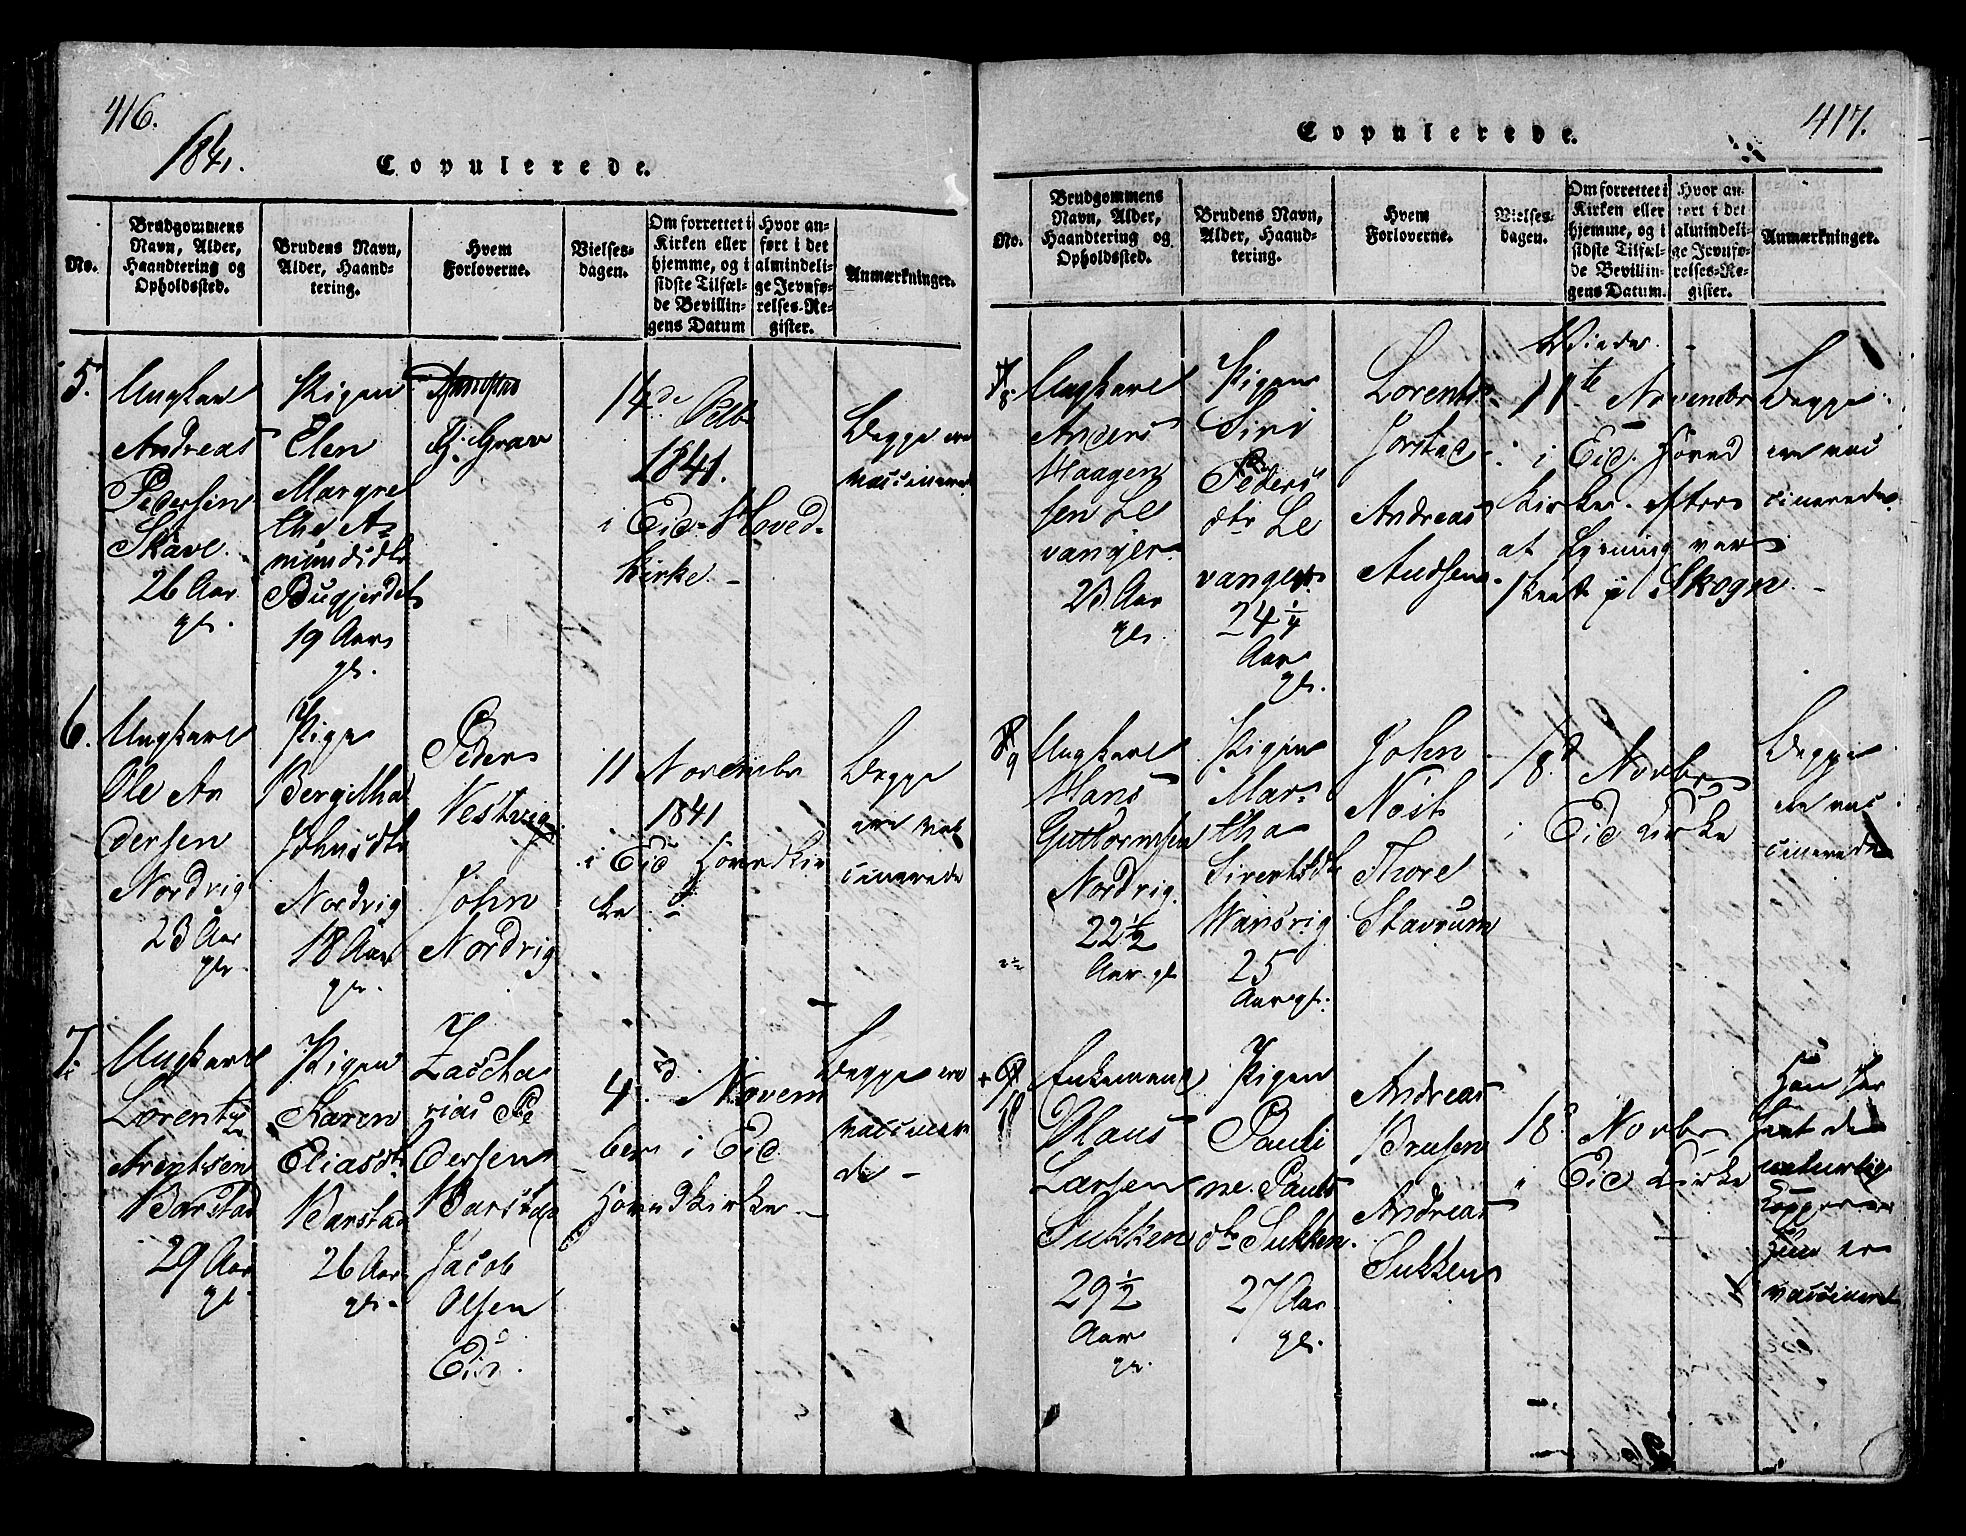 416.
1841.
Copulerede.
No.
Brudgommens
Navn, Alder,
Haandtering og
Opholdssted.
Brudens Navn,
Alder, Haand-
tering.
Hvem
Forloverne.
Vielses-
dagen.
Om forrettet i
Kirken eller
hjemme, og i
sidste Tilfæl-
de Bevillin-
gens Datum
Hvor an-
ført i det
almindeli-
ge Jevnfø-
relses-Re-
gister.
Anmærkninger.
5.
Ungkarl
Andreas
Pedersen
Skave.
26 Aar
gl.
Pigen
Elen
Margre
the A-
mundsdtr
19 Aar
gl.
G. Grav
14de
1841.
i Eid Hoved-
kirke. -
Begge ere
vaccinerede
6.
Ungkarl
Ole An
dersen
Nordvig
23 Aar
gl.
Pige
Bergitha
Johnsdtr
Nordvig
18 Aar
gl.
Peder
Vestvig
John
Nordvig
11 Novembr
1841
i Eid Hovedkir
ke
Begge
ere vac
cinerede
7.
Ungkarl
Lorentz
Arentsen
Barstad
29 Aar
gl.
Pigen
Karen
Eliasdtr
Barstad
26 Aar
gl.
Zascha
rias Pe
dersen
Barstad
Jacob
Olsen
Eid.
4. Novem
ber i Eid
Hovedkirke. -
Begge ere
vaccinere
de -
417.
Copulerede.
No.
Brudgommens
Navn, Alder,
Haandtering og
Opholdssted.
Brudens Navn,
Alder, Haand-
tering.
Hvem
Forloverne.
Vielses-
dagen.
Om forrettet i
Kirken eller
hjemme, og i
sidste Tilfæl-
de Bevillin-
gens Datum.
Hvor an-
ført i det
almindeli-
ge Jevnfø-
relses-Re-
gister.
Anmærkninger.
8
Ungkarl
Anders
Haagen
sen Le
vanger
23 Aar
gl.
Pigen
Siri
Peders
dtr Le
vanger.
24 1/4
Aar
gl.
Lorents
Jørstad
Andreas
Andsen
Viede
11te Novembr
i Eid Hoved
kirke. efter
at Lysning var
skeet i Skogn.
Begge
ere vac
cinerede
9
Ungkarl
Hans
Guttormsen
Nordvig
22 1/2
Aar gl
Pigen
Mar-
tha
Sivertsdtr
Hansvig
25
Aar gl.
John
Nøst
Thore
Stavrum
18d Novbr
i Eid Kirke
Begge
ere vac
cinerede
10
Enkemand
Claus
Larsen
Sukken
29 1/2
Aar
gl.
Pigen
Pauli
ne Pauls
dtr Sukken.
27 Aar
gl.
Andreas
Brusen
Andreas
Sukken
18d Novbr
i Eid Kirke
Han har
havt de
naturlige
Kopper
Hun er
vaccineret